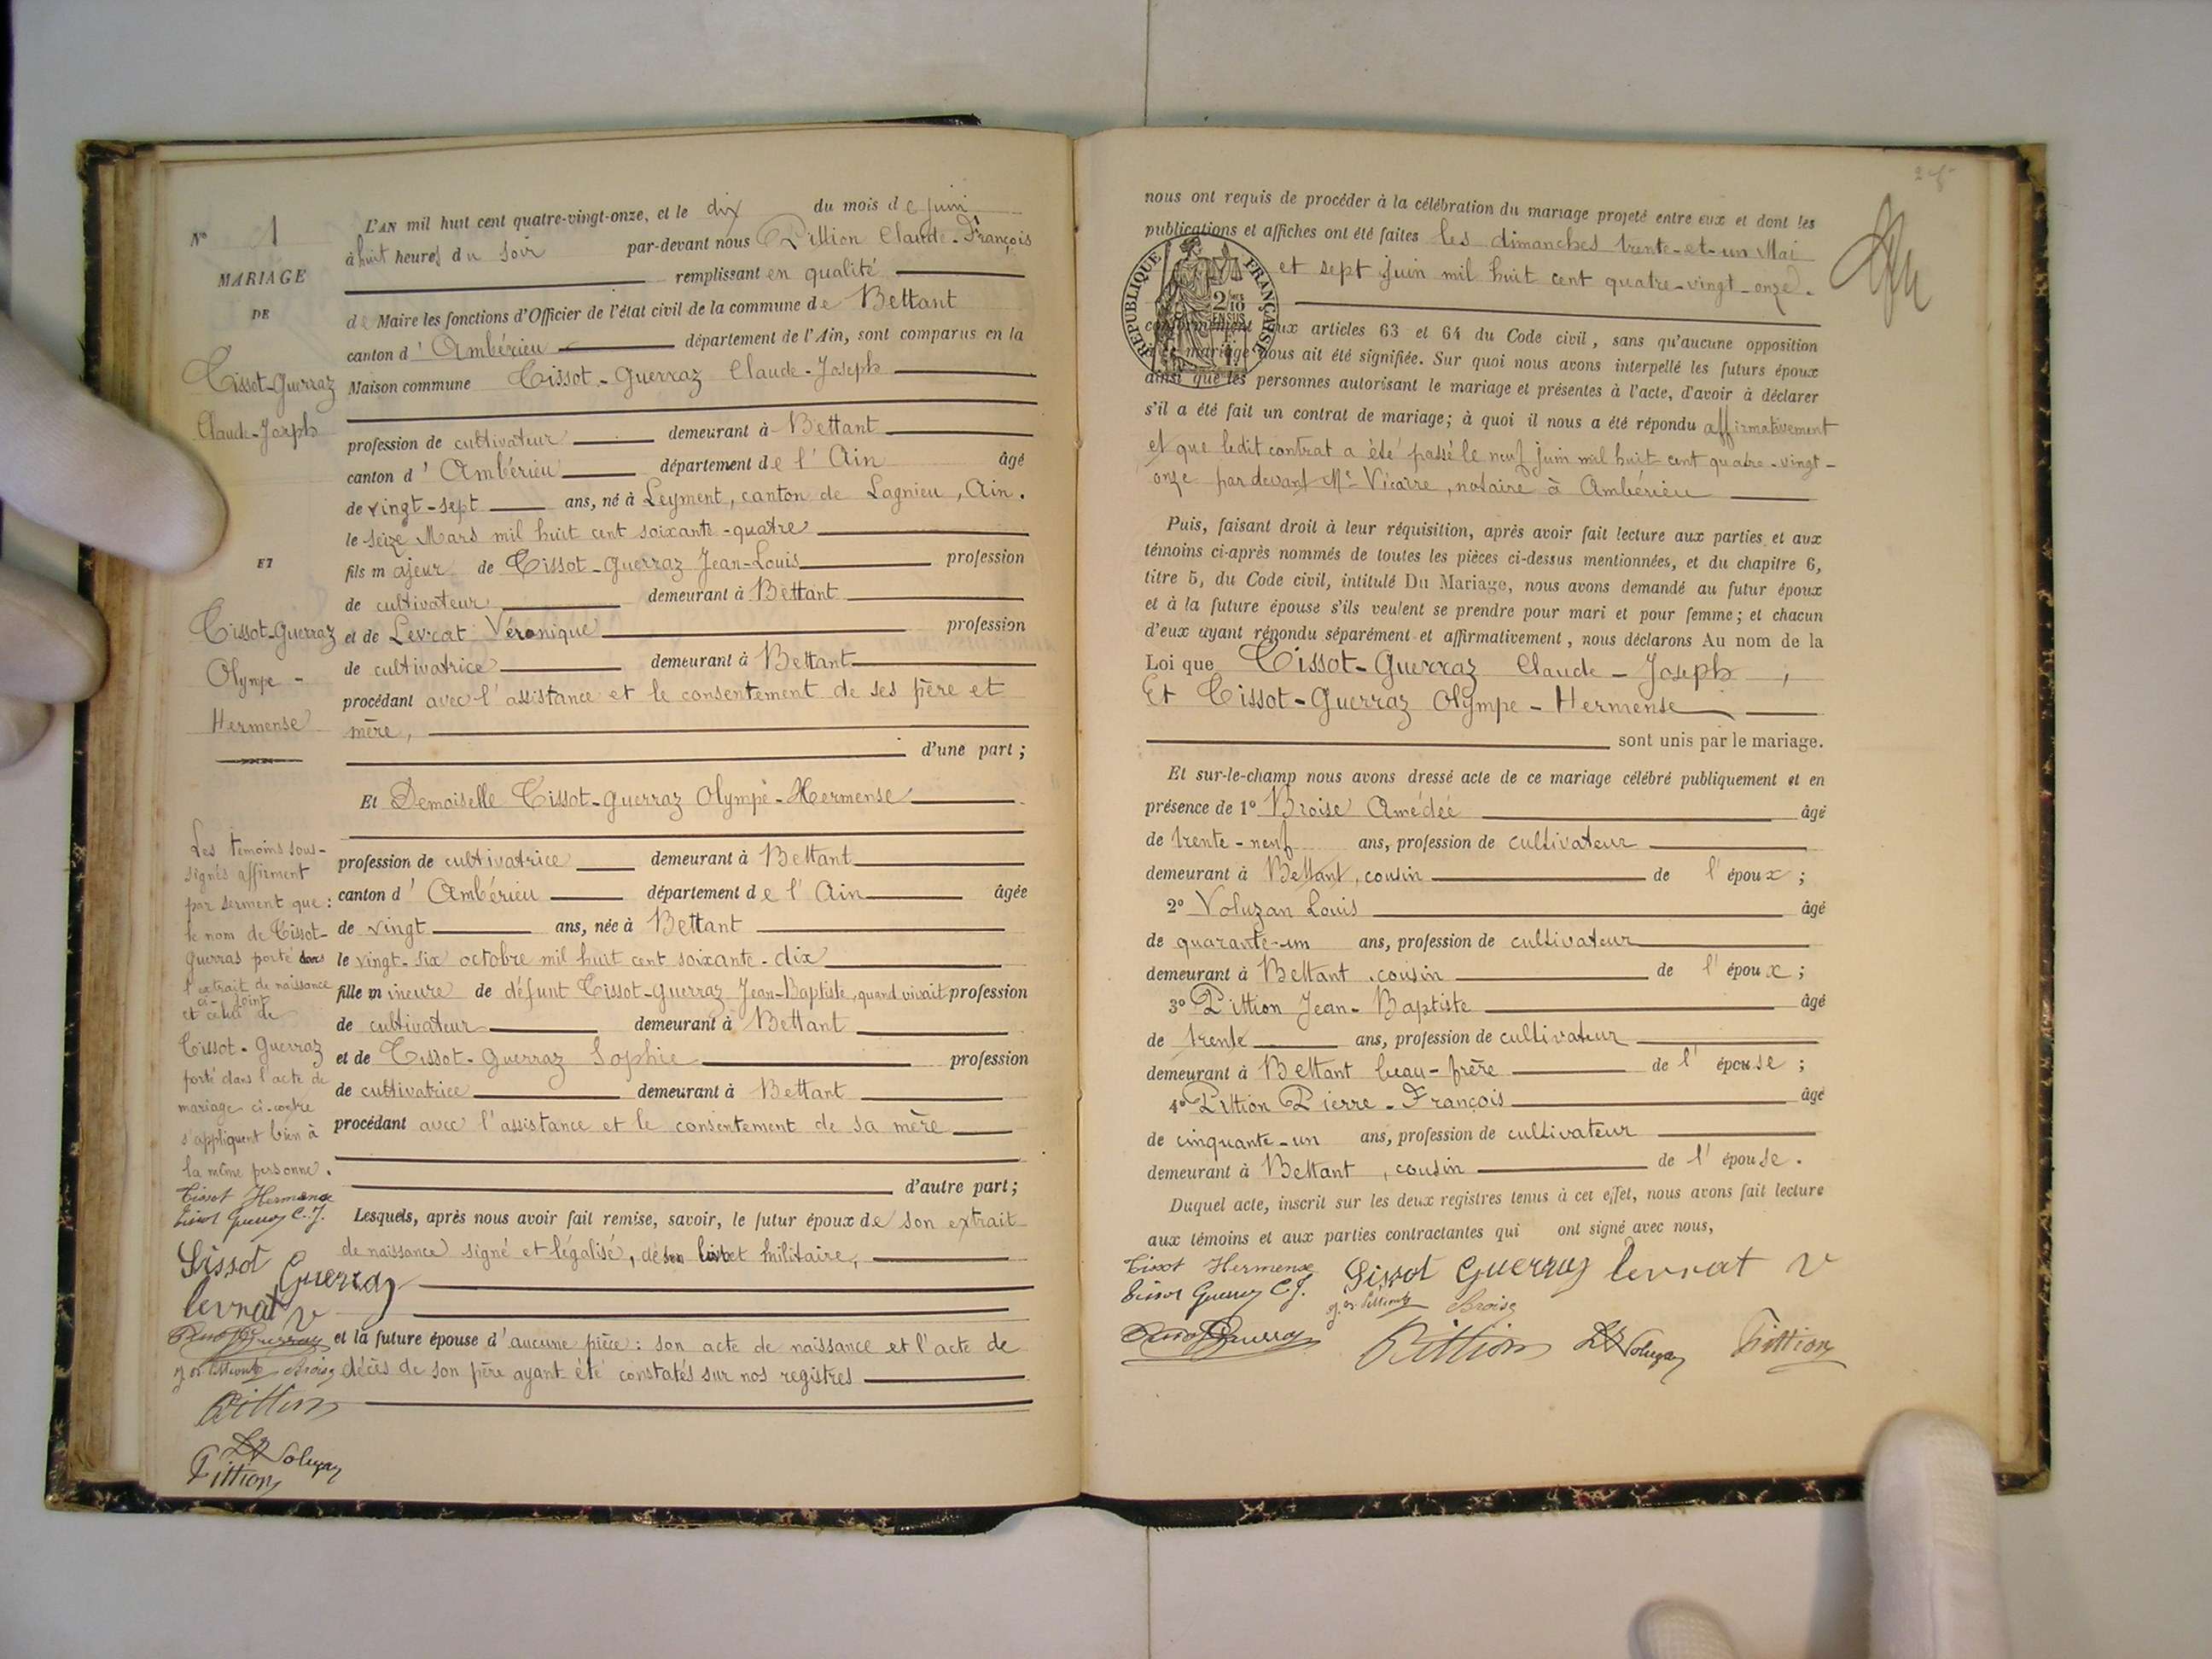 Nº 1
MARIAGE
DE
Tissot-Guerraz
Claude-Joseph
ET
Tissot-Guerraz
Olympe -
Hermense
Les témoins sous-
signés affirment
par serment que :
le nom de Tissot-
Guerras porté dans
l'extrait de naissance
ci-joint
et celui de
Tissot-Guerraz
porté dans l'acte de
mariage ci-contre
s'appliquent bien à
la même personne.
Tissot Hermense
Tissot Guerraz C. J.
Tissot Guerraz
levrat V
J. B. Pittion Broise
Pittion
Voluzan
Pittion
L'AN mil huit cent quatre-vingt-onze, et le dix du mois de juin
à huit heures du soir par-devant nous Pittion Claude-François
remplissant en qualité
de Maire les fonctions d'Officier de l'état civil de la commune de Bettant
canton d'Ambérieu département de l'Ain, sont comparus en la
Maison commune Tissot-Guerraz Claude-Joseph
profession de cultivateur demeurant à Bettant
canton d'Ambérieu département de l'Ain âgé
de vingt-sept ans, né à Leyment, canton de Lagnieu, Ain.
le seize Mars mil huit cent soixante-quatre
fils majeur de Tissot-Guerraz Jean-Louis profession
de cultivateur demeurant à Bettant
et de Levrat Véronique profession
de cultivatrice demeurant à Bettant
procédant avec l'assistance et le consentement de ses père et
mère,
d'une part ;
Et Demoiselle Tissot-Guerraz Olympe-Hermense
profession de cultivatrice demeurant à Bettant
canton d'Ambérieu département de l'Ain âgée
de vingt ans, née à Bettant
le vingt-six octobre mil huit cent soixante-dix
fille mineure de défunt Tissot-Guerraz Jean-Baptiste, quand vivait profession
de cultivateur demeurant à Bettant
et de Tissot-Guerraz Sophie profession
de cultivatrice demeurant à Bettant
procédant avec l'assistance et le consentement de sa mère
d'autre part ;
Lesquels, après nous avoir fait remise, savoir, le futur époux de son extrait
de naissance signé et légalisé, de son livret militaire,
et la future épouse d'aucune pièce : son acte de naissance et l'acte de
décès de son père ayant été constatés sur nos registres
nous ont requis de procéder à la célébration du mariage projeté entre eux et dont les
publications et affiches ont été faites les dimanches trente-et-un Mai
et sept juin mil huit cent quatre-vingt-onze.
RÉPUBLIQUE FRANÇAISE
2/10 EN SUS
conformément aux articles 63 et 64 du Code civil, sans qu'aucune opposition
mariage nous ait été signifiée. Sur quoi nous avons interpellé les futurs époux
ainsi que les personnes autorisant le mariage et présentes à l'acte, d'avoir à déclarer
s'il a été fait un contrat de mariage ; à quoi il nous a été répondu affirmativement
et que ledit contrat a été passé le neuf juin mil huit cent quatre-vingt-
onze par devant Mᵉ Vicaire, notaire à Ambérieu
Puis, faisant droit à leur réquisition, après avoir fait lecture aux parties et aux
témoins ci-après nommés de toutes les pièces ci-dessus mentionnées, et du chapitre 6,
titre 5, du Code civil, intitulé Du Mariage, nous avons demandé au futur époux
et à la future épouse s'ils veulent se prendre pour mari et pour femme ; et chacun
d'eux ayant répondu séparément et affirmativement, nous déclarons Au nom de la
Loi que Tissot-Guerraz Claude-Joseph,
Et Tissot-Guerraz Olympe-Hermense
sont unis par le mariage.
Et sur-le-champ nous avons dressé acte de ce mariage célébré publiquement et en
présence de 1º Broise Amédée âgé
de trente-neuf ans, profession de cultivateur
demeurant à Bettant, cousin de l'époux ;
2º Voluzan Louis âgé
de quarante-un ans, profession de cultivateur
demeurant à Bettant, cousin de l'époux ;
3º Pittion Jean-Baptiste âgé
de trente ans, profession de cultivateur
demeurant à Bettant beau-frère de l'épouse ;
4º Pittion Pierre-François âgé
de cinquante-un ans, profession de cultivateur
demeurant à Bettant, cousin de l'épouse.
Duquel acte, inscrit sur les deux registres tenus à cet effet, nous avons fait lecture
aux témoins et aux parties contractantes qui ont signé avec nous,
Tissot Hermense Tissot Guerraz levrat V
Tissot Guerraz C. J. J. B. Pittion Broise
Pittion Voluzan Pittion